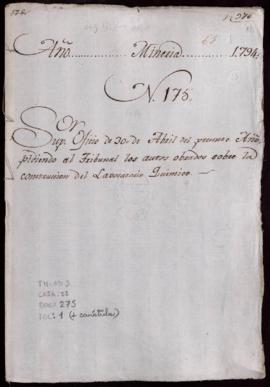 Año Mineria 1794
N. 175
Supr. Oficio de 30 de Abril del presente Año,
pidiendo al Tribunal los autos obrados sobre la
construccion del Laboratorio Quimico.
CAJA: 
DOC: 275
FOL: 1 (+ carátula)